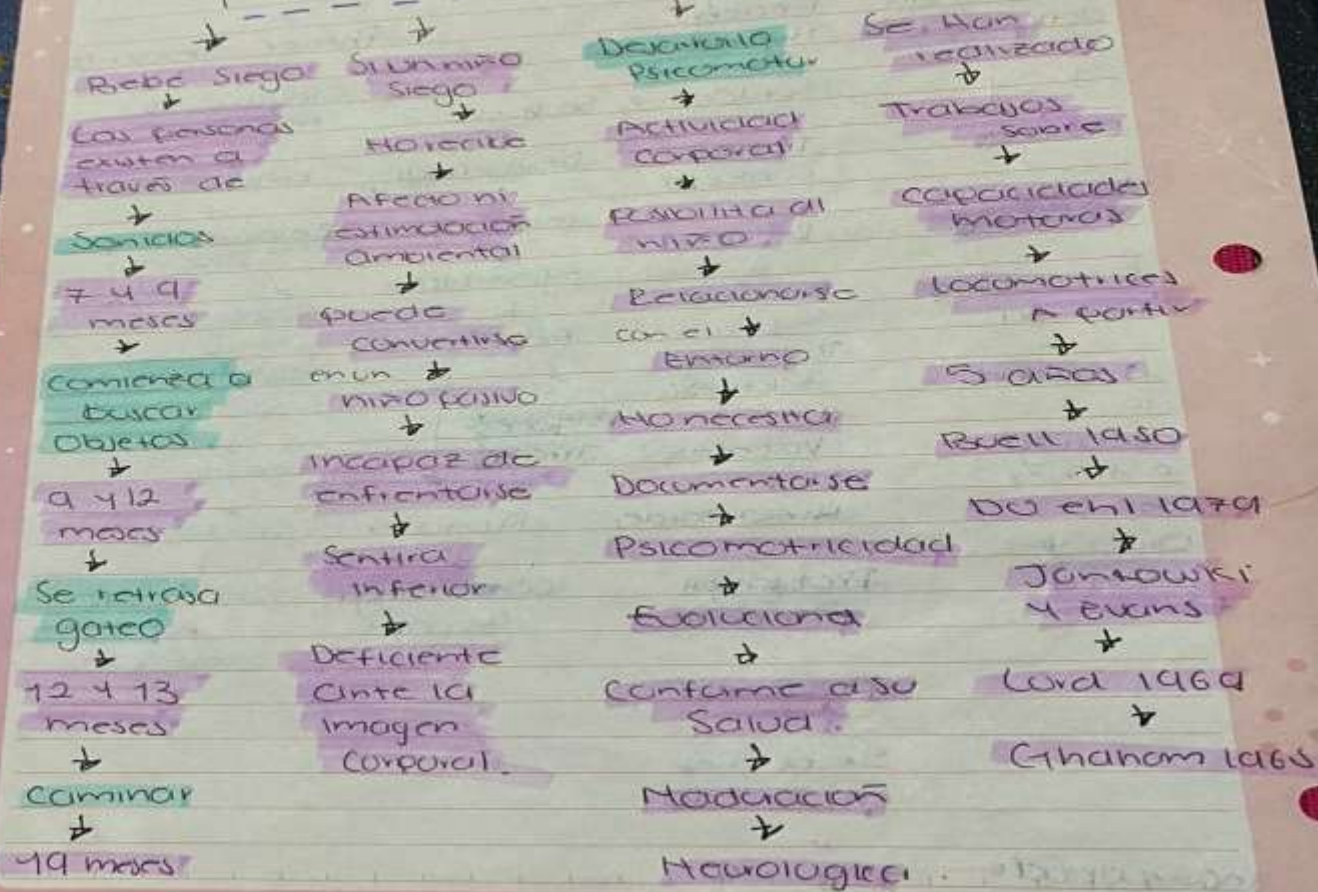 Bebé Siego
Las personas
existen a
través de
Sonidos
7 y 9
meses
comienza a
buscar
Objetos
9 y 12
meses
Se retrasa
gateo
12 y 13
meses
Caminar
19 meses
Si un niño
Siego
No recibe
Afecto ni
estimulación
ambiental
puede
convertirse
en un
niño pasivo
Incapaz de
enfrentarse
Sentira
Inferior
Deficiente
ante la
imagen
Corporal.
Desarrollo
Psicomotur
Actividad
corporal
Posibilita al
niño
Relacionarse
con el
Entorno
No necesita
Documentarse
Psicomotricidad
Evoluciona
Conforme a su
Salud.
Maduración
Neurologica.
Se. Han
realizado
Trabajos
sobre
capacidades
motoras
locomotrices
A partir
5 años
Buell 1950
Jantowski
y evans
Lord 1969